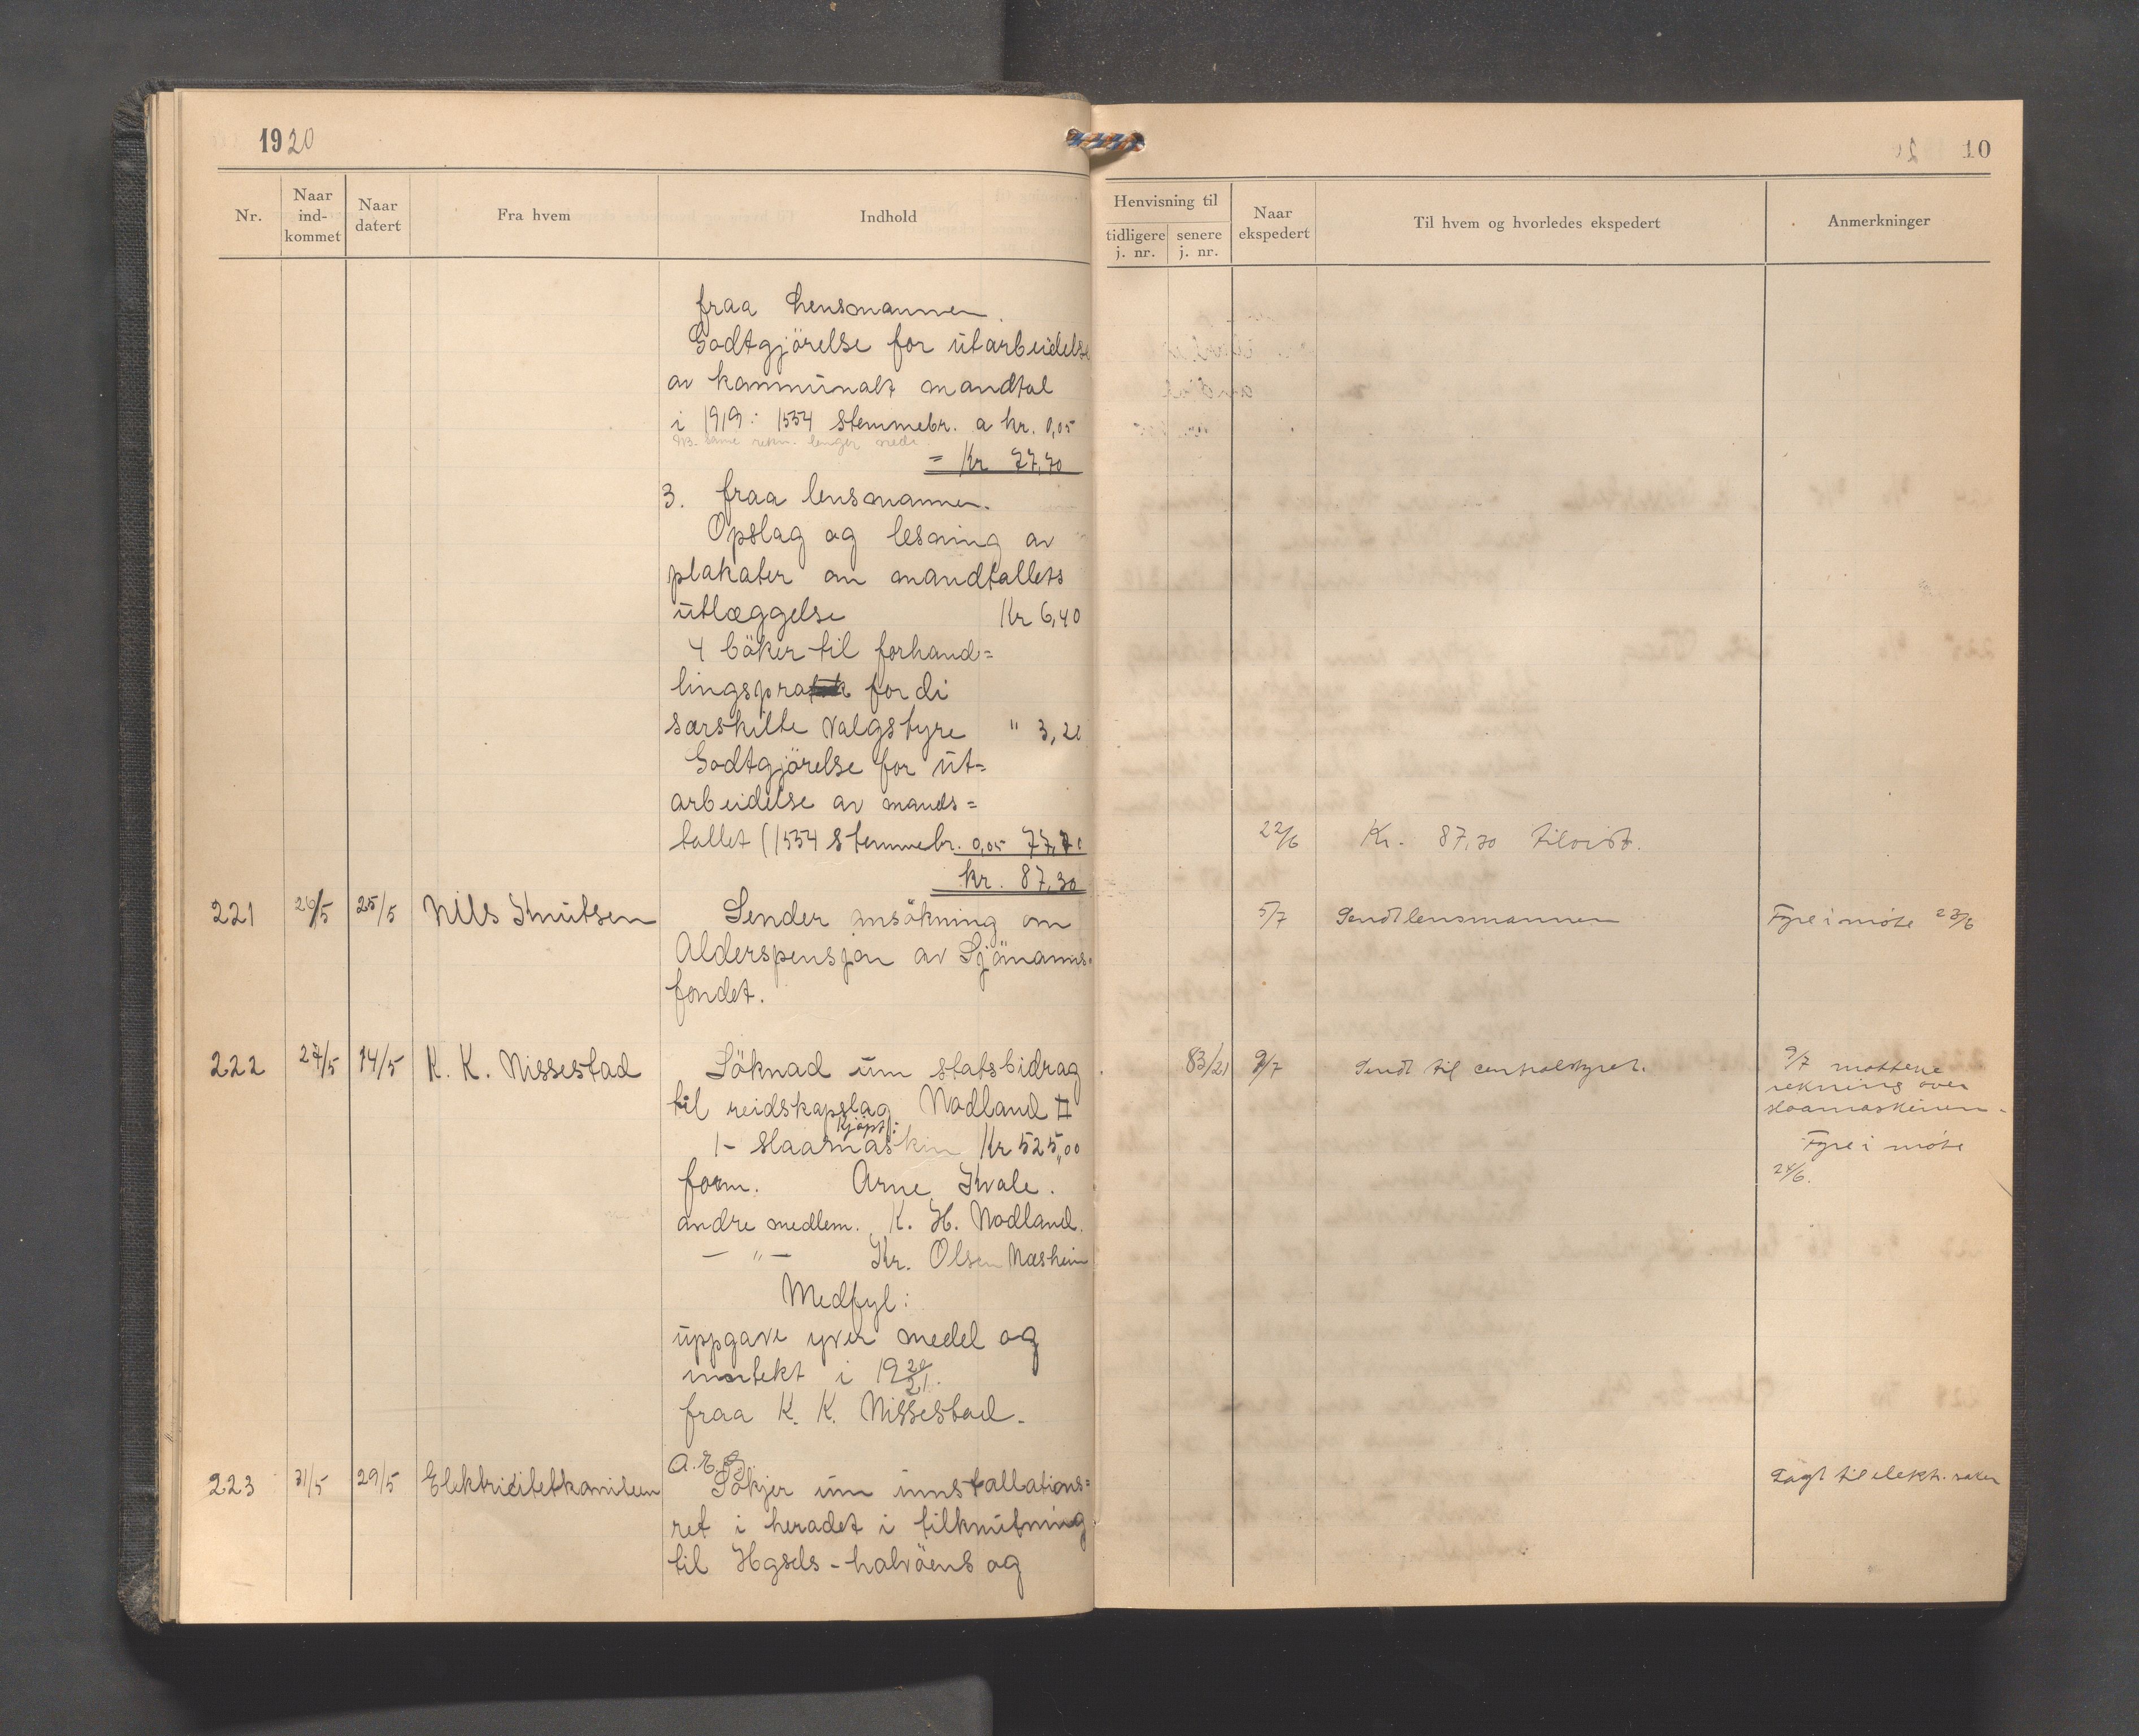 1920
Nr.
Naar ind-kommet
Naar datert
Fra hvem
Indhold
fraa lensmannen.
Godtgjörelse for utarbeidelse
av kommunalt mandtal
i 1919: 1554 stemmebr. a kr. 0,05
NB. same rekn. lenger nede.
= Kr 77,70
3. fraa lensmannen.
Opslag og lesning av
plakater om mandtallets
utlæggelse Kr 6,40
4 böker til forhand=
lingspra for di
særskilte valgstyre " 3,20
Godtgjörelse for ut=
arbeidelse av mands=
tallet (1554 stemmebr. 0,05 77,70
kr. 87,30
221 26/5 25/5 Nils Knutsen Sender ansökning om
Alderspensjon av Sjömanns-
fondet.
222 27/5 14/5 K. K. Nissestad Söknad um statsbidrag
til reidskapslag Nodland II
Kjöpt:
1- slaamaskin Kr 525,00
form. Arne Kvale.
andre medlem. K. H. Nodland.
— " — Kr. Olsen Næsheim
Medfyl:
uppgave yver medel og
inntekt i 1920/21.
fraa K. K. Nissestad.
223 31/5 29/5 Elektricitetkomiteen A.E.G.
Sökjer um innstallations=
ret i heradet i tilknutning
til Hgsds-halvöens og
10
Henvisning til
tidligere j. nr.
senere j. nr.
Naar ekspedert
Til hvem og hvorledes ekspedert
Anmerkninger
22/6 Kr. 87,30 tilvist.
5/7 Sendt lensmannen Fyre i möte 23/6
83/21 9/7 Sendt til centralstyret. 9/7 mottene
rekning over
slaamaskinen.
Fyre i möte
24/6.
Lagt til elektr. saker